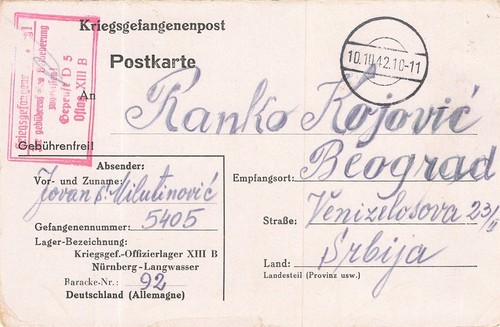 Kriegsgefangenenpost
Postkarte
10.10.42.10-11
Geprüft D 5
Oflag XIII B
An Ranko Kojović
Gebührenfrei!
Absender:
Vor- und Zuname:
Jovan S. Milutinović
Gefangenennummer: 5405
Lager-Bezeichnung:
Kriegsgef.-Offizierlager XIII B
Nürnberg-Langwasser
Baracke-Nr.: 92
Deutschland (Allemagne)
Empfangsort: Beograd
Straße: Venizelosova 23/II
Srbija
Land:
Landesteil (Provinz usw.)